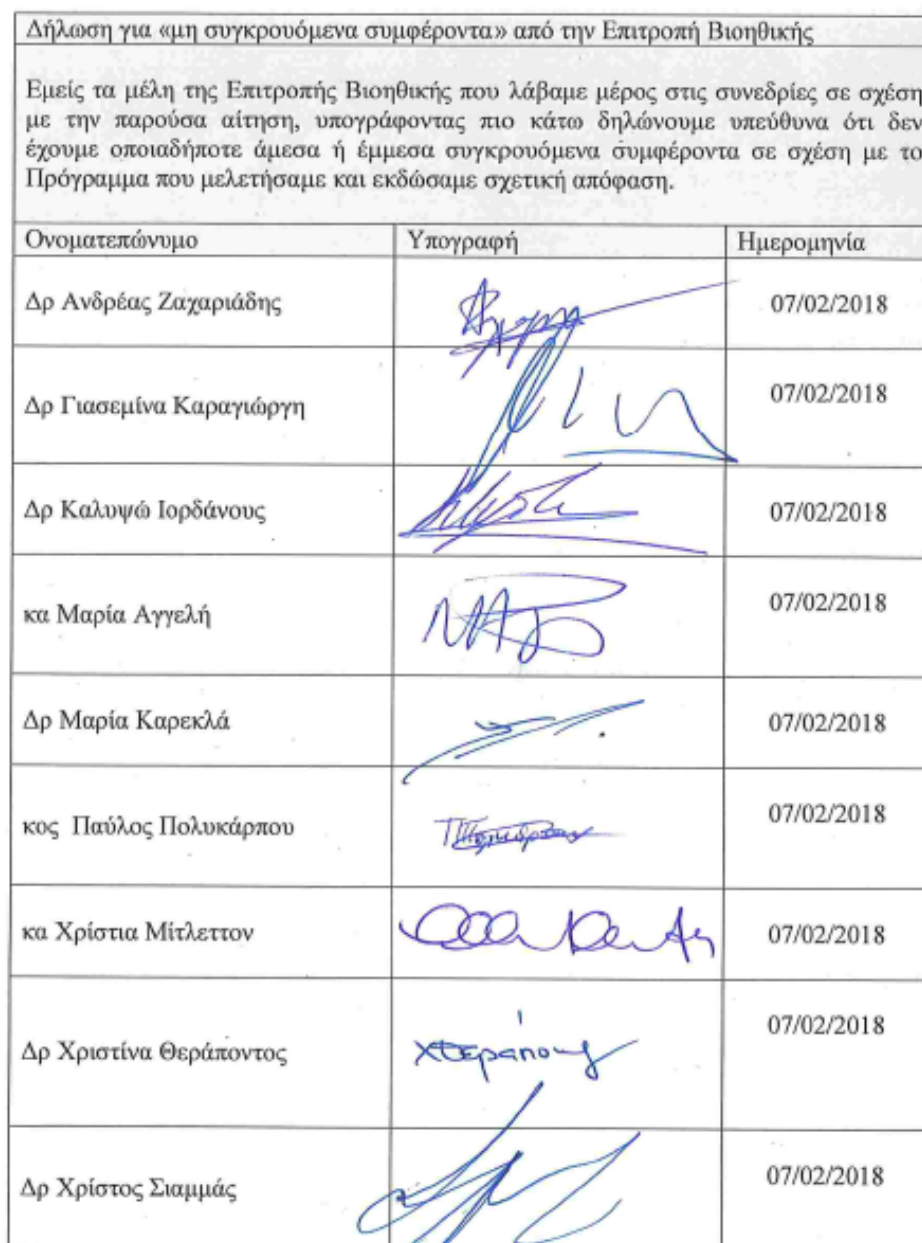 Δήλωση για «μη συγκρουόμενα συμφέροντα» από την Επιτροπή Βιοηθικής
Εμείς τα μέλη της Επιτροπής Βιοηθικής που λάβαμε μέρος στις συνεδρίες σε σχέση
με την παρούσα αίτηση, υπογράφοντας πιο κάτω δηλώνουμε υπεύθυνα ότι δεν
έχουμε οποιαδήποτε άμεσα ή έμμεσα συγκρουόμενα συμφέροντα σε σχέση με το
Πρόγραμμα που μελετήσαμε και εκδώσαμε σχετική απόφαση.
Ονοματεπώνυμο Υπογραφή Ημερομηνία
Δρ Ανδρέας Ζαχαριάδης 07/02/2018
Δρ Γιασεμίνα Καραγιώργη 07/02/2018
Δρ Καλυψώ Ιορδάνους 07/02/2018
κα Μαρία Αγγελή 07/02/2018
Δρ Μαρία Καρεκλά 07/02/2018
κος Παύλος Πολυκάρπου 07/02/2018
κα Χρίστια Μίτλεττον 07/02/2018
Δρ Χριστίνα Θεράποντος 07/02/2018
Δρ Χρίστος Σιαμμάς 07/02/2018